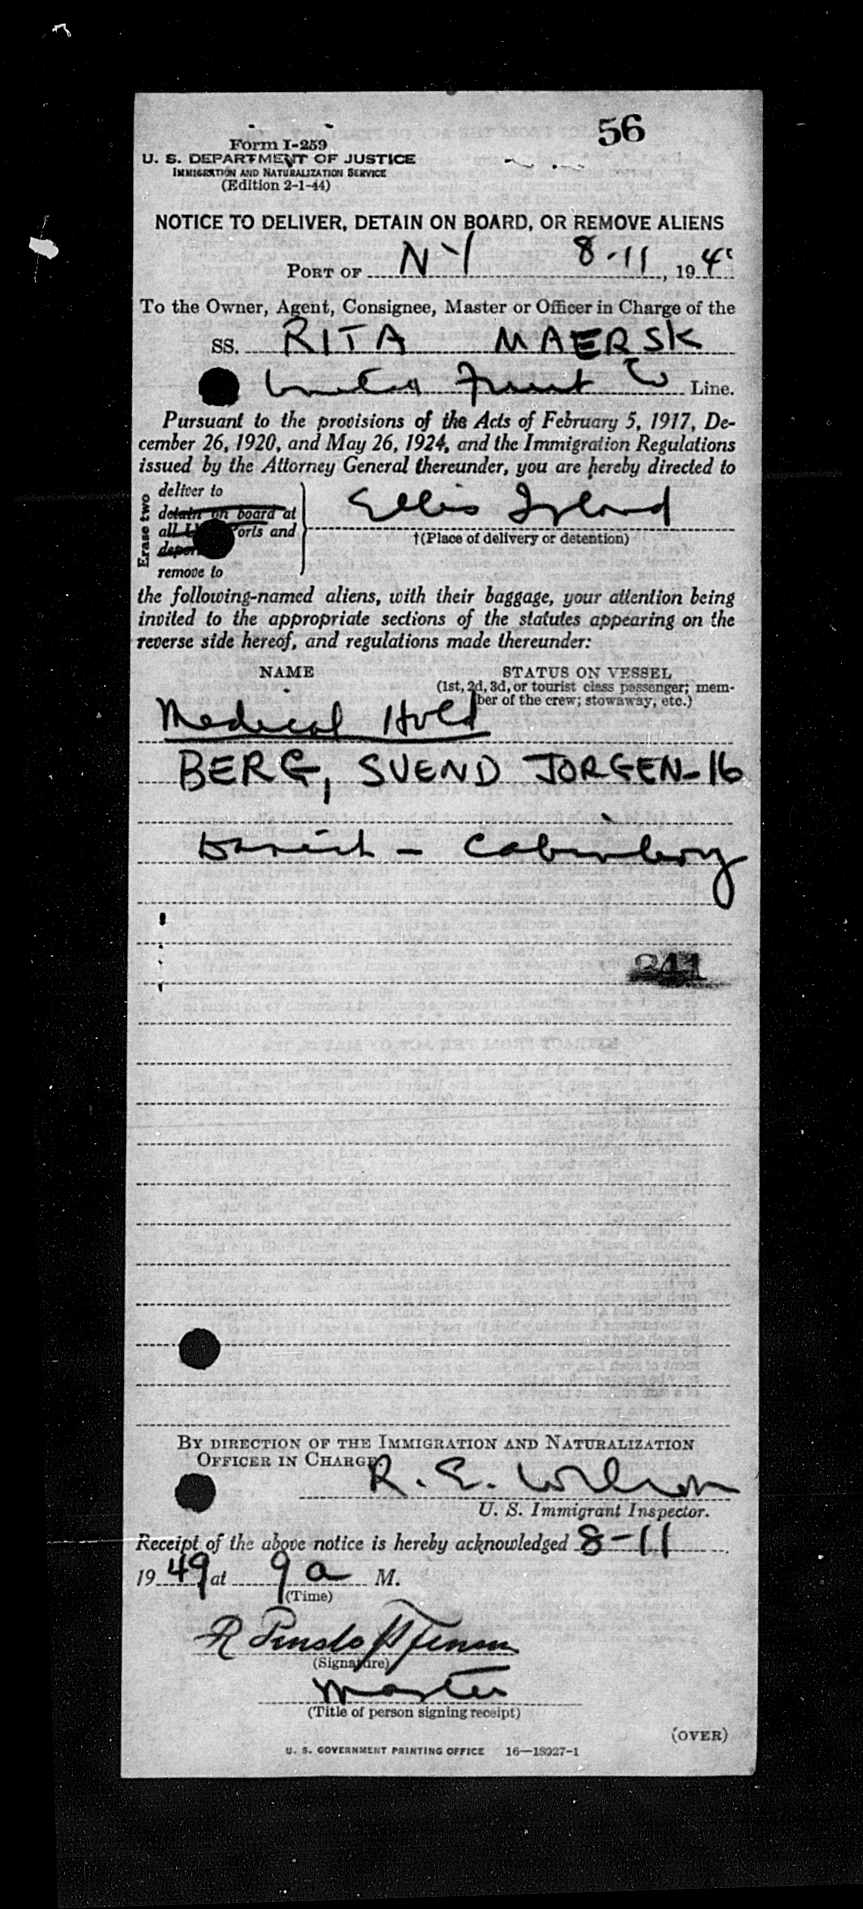 56
Form I-259
U. S. DEPARTMENT OF JUSTICE
IMMIGRATION AND NATURALIZATION SERVICE
(Edition 2-1-44)
NOTICE TO DELIVER, DETAIN ON BOARD, OR REMOVE ALIENS
PORT OF NY 8-11, 194
To the Owner, Agent, Consignee, Master or Officer in Charge of the
SS. RITA MAERSK
United Fruit Co Line.
Pursuant to the provisions of the Acts of February 5, 1917, De-
cember 26, 1920, and May 26, 1924, and the Immigration Regulations
issued by the Attorney General thereunder, you are hereby directed to
Erase two
deliver to
detain on board at
all ports and
remove to
Ellis Island
†(Place of delivery or detention)
the following-named aliens, with their baggage, your attention being
invited to the appropriate sections of the statutes appearing on the
reverse side hereof, and regulations made thereunder:
NAME STATUS ON VESSEL
(1st, 2d, 3d, or tourist class passenger; mem-
ber of the crew; stowaway, etc.)
Medical Hold
BERG, SVEND JORGEN-16
Danish - Cabinboy
241
BY DIRECTION OF THE IMMIGRATION AND NATURALIZATION
OFFICER IN CHARGE
R. E. Wilson
U. S. Immigrant Inspector.
Receipt of the above notice is hereby acknowledged 8-11
1949 at 9 a M.
(Time)
R
(Signature)
Master
(Title of person signing receipt)
(OVER)
U. S. GOVERNMENT PRINTING OFFICE 16—18027-1